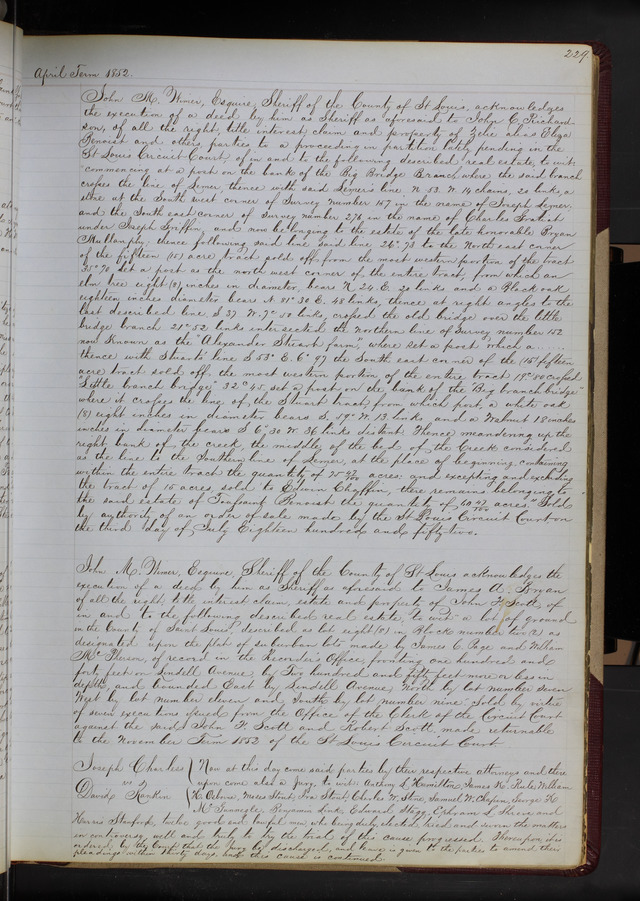 229
April Term 1852.
John M. Wimer, Esquire, Sheriff of the County of St Louis, acknowledges
the execution of a deed by him as Sheriff as aforesaid to John C. Richard
son, of all the right, title interest, claim and property of Zelie alias Eliza
Benoist and others parties to a proceeding in partition lately pending in the
St Louis Circuit Court, of in and to the following described real estate, to wit:
commencing at a post on the bank of the Big Bridge Branch where the said branch
crosses the line of Lemer, thence with said Lemer's line N. 53. W. 14 chains, 20 links, a
stone at the South west corner of Survey number 107 in the name of Joseph Lemer
and the South east corner of Survey number 276, in the name of Charles Gratiot
under Joseph Griffin, and now belonging to the estate of the late honorable Bryan
Mullanphy: thence following said line said line 26c 73 to the North east corner
of the fifteen (15) acre tract sold off from the most western portion of the tract
35c 70 set a post as the north west corner of the entire tract, from which an
elm tree eight (8) inches in diameter, bears N 24 E. 20 links and a Black oak
eighteen inches diameter bears N 81° 30 E. 48 links, thence at right angles to the
last described line S 37 W. 7c 50 links, crossed the old bridge over the little
bridge branch 21c 52 links intersected the Northern line of Survey number 152
now known as the "Alexander Stuart farm", where set a post which a
thence with Stuarts line S 53° E. 6c 97 the South east corner of the (15) fifteen
acre tract sold off the most western portion of the entire tract 19c 50 crossed
"Little branch bridge" 32c 45 set a post, on the bank of the "Big branch bridge"
where it crosses the line of, the Stuart tract, from which post, a white oak
(8) eight inches in diameter bears S. 59° W. 13 links and a Walnut 18 inches
inches in diameter bears S 6° 30 W 36 links distant. Thence meandering up the
right bank of the creek, the middle of the bed of the Creek considered
as the line to the Southern line of Lemer, at the place of beginning containing
within the entire tract the quantity of 75 acres and excepting and excluding
the tract of 15 acres, sold to Ebern Chaffin, there remains belonging to
the said estate of Benoist the quantity of 60 acres. Sold
by authority of an order of sale made by the St Louis Circuit Court on
the third day of July Eighteen hundred and fifty-two.
John M. Wimer, Esquire, Sheriff of the County of St Louis acknowledges the
execution of a deed by him as Sheriff as aforesaid to James A. Bryan
of all the right, title interest claim, estate and property of John F. Scott of
in and to the following described real estate, to wit: a lot of ground
in the County of Saint Louis, described as lot eight (8) in Block number two (2) as
designated upon the plat of suburban lots made by James C. Page and William
McPherson, of record in the Recorder's Office, fronting one hundred and
forty feet on Lindell Avenue, by Two hundred and fifty feet more or less in
depth, and bounded East by Lindell Avenue, North by lot number seven
West by lot number eleven and South by lot number nine. Sold by virtue
of seven executions issued from the Office of the Clerk of the Circuit Court
against the said John F. Scott and Robert Scott, made returnable
to the November Term 1852 of the St Louis Circuit Court.
Joseph Charless
vs
David Rankin
Now at this day come said parties by their respective attorneys and there
upon come also a Jury, to wit: Anthony L. Hamilton, James W. Rule, William
H. Osborne, Moses Stout, Ira Stout, Charles W. Stone, Samuel W. Chapin, George K
McGunnegle, Benjamin Link, Edward Stagg, Ephraim L. Shreve and
Harris Stanford, twelve good and lawful men, who being duly elected, tried and sworn the matters
in controversy, well and truly to try the trial of this cause progressed. Thereupon, it is
ordered by the Court that the Jury be discharged, and leave is given to the parties to amend their
pleadings within thirty days, and this cause is continued.